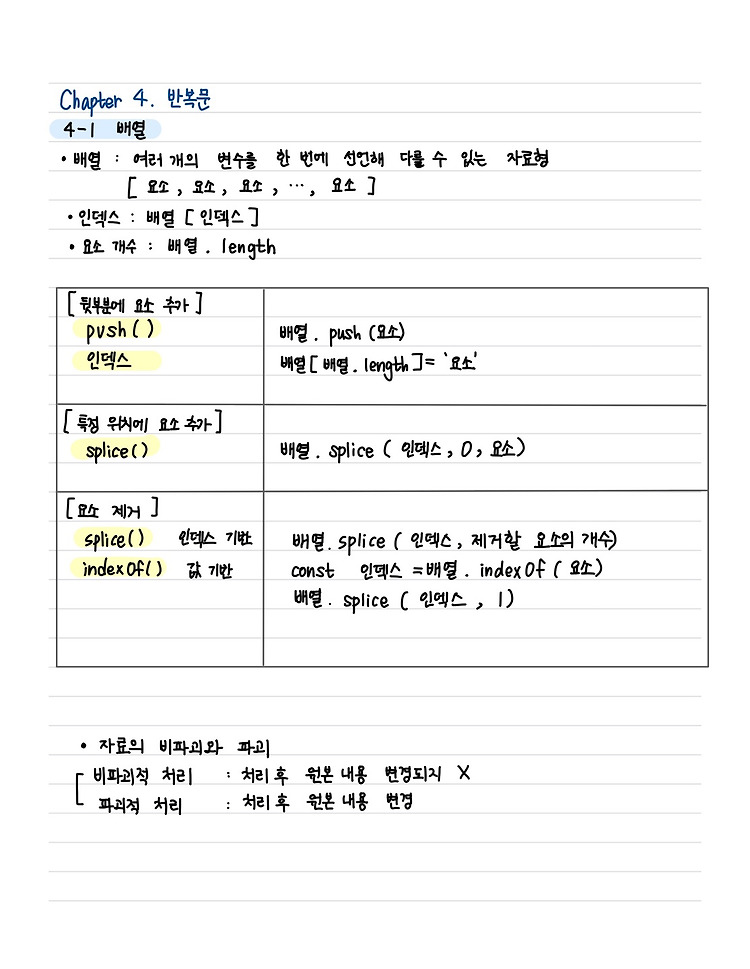 Chapter 4. 반복문
4-1 배열
• 배열 : 여러 개의 변수를 한 번에 선언해 다룰 수 있는 자료형
[ 요소, 요소, 요소, ..., 요소 ]
• 인덱스 : 배열 [ 인덱스 ]
• 요소 개수 : 배열 . length
[ 뒷부분에 요소 추가 ]
push ( ) 배열 . push (요소)
인덱스 배열 [ 배열 . length ] = '요소'
[ 특정 위치에 요소 추가 ]
splice ( ) 배열 . splice ( 인덱스, 0, 요소)
[ 요소 제거 ]
splice ( ) 인덱스 기반 배열. splice ( 인덱스, 제거할 요소의 개수)
indexOf ( ) 값 기반 const 인덱스 = 배열 . indexOf ( 요소)
배열. splice ( 인덱스 , 1 )
• 자료의 비파괴와 파괴
비파괴적 처리 : 처리 후 원본 내용 변경되지 X
파괴적 처리 : 처리 후 원본 내용 변경